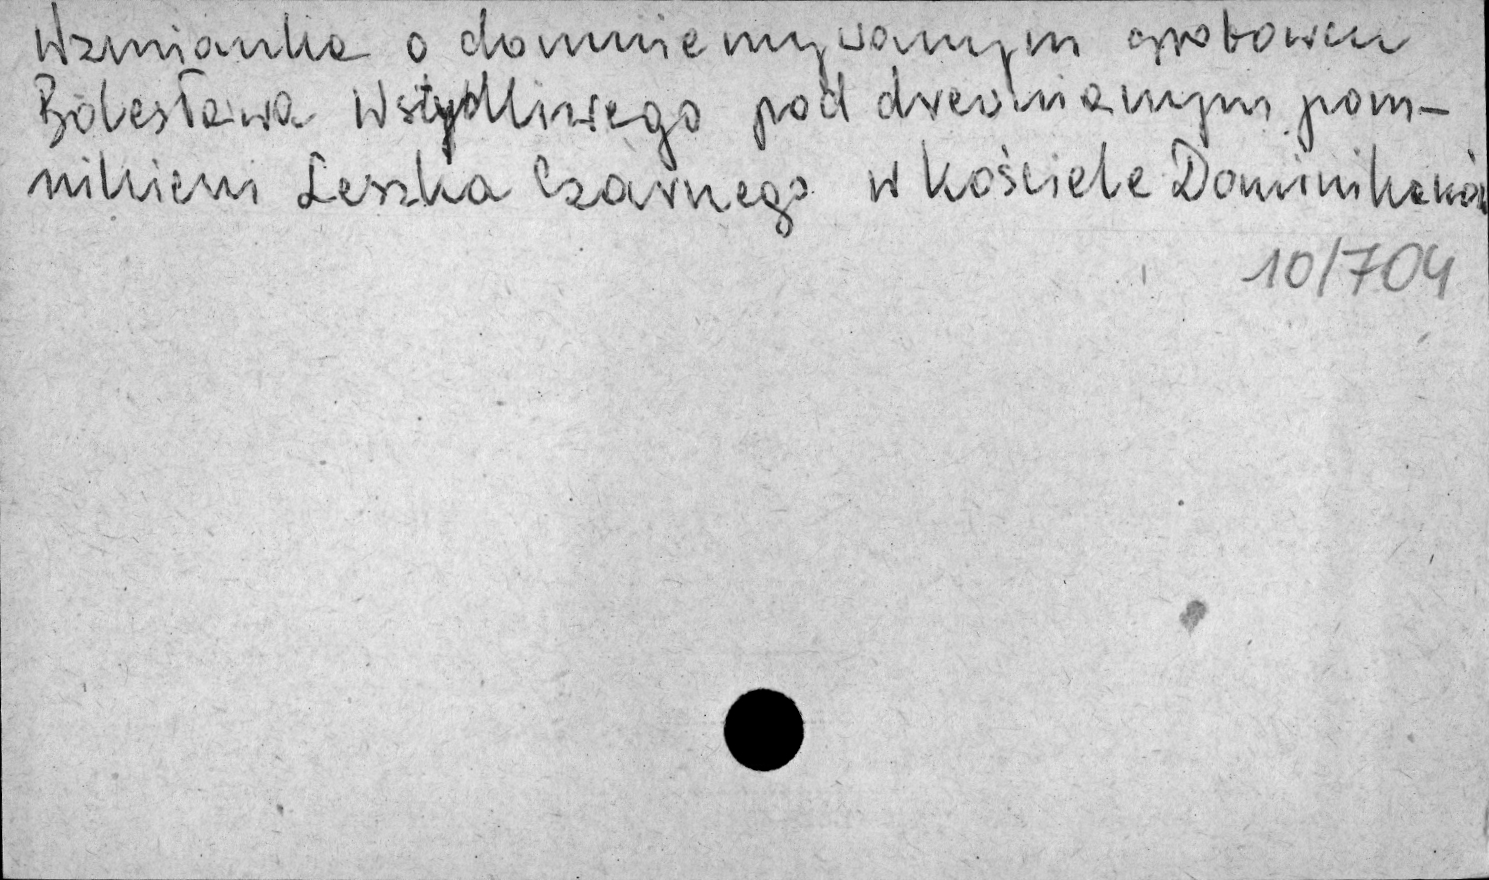 Wzmianka o domniemywanym grobowcu
Bolesława Wstydliwego pod drewnianym pom-
nikiem Leszka Czarnego w kościele Dominikanów
10/704